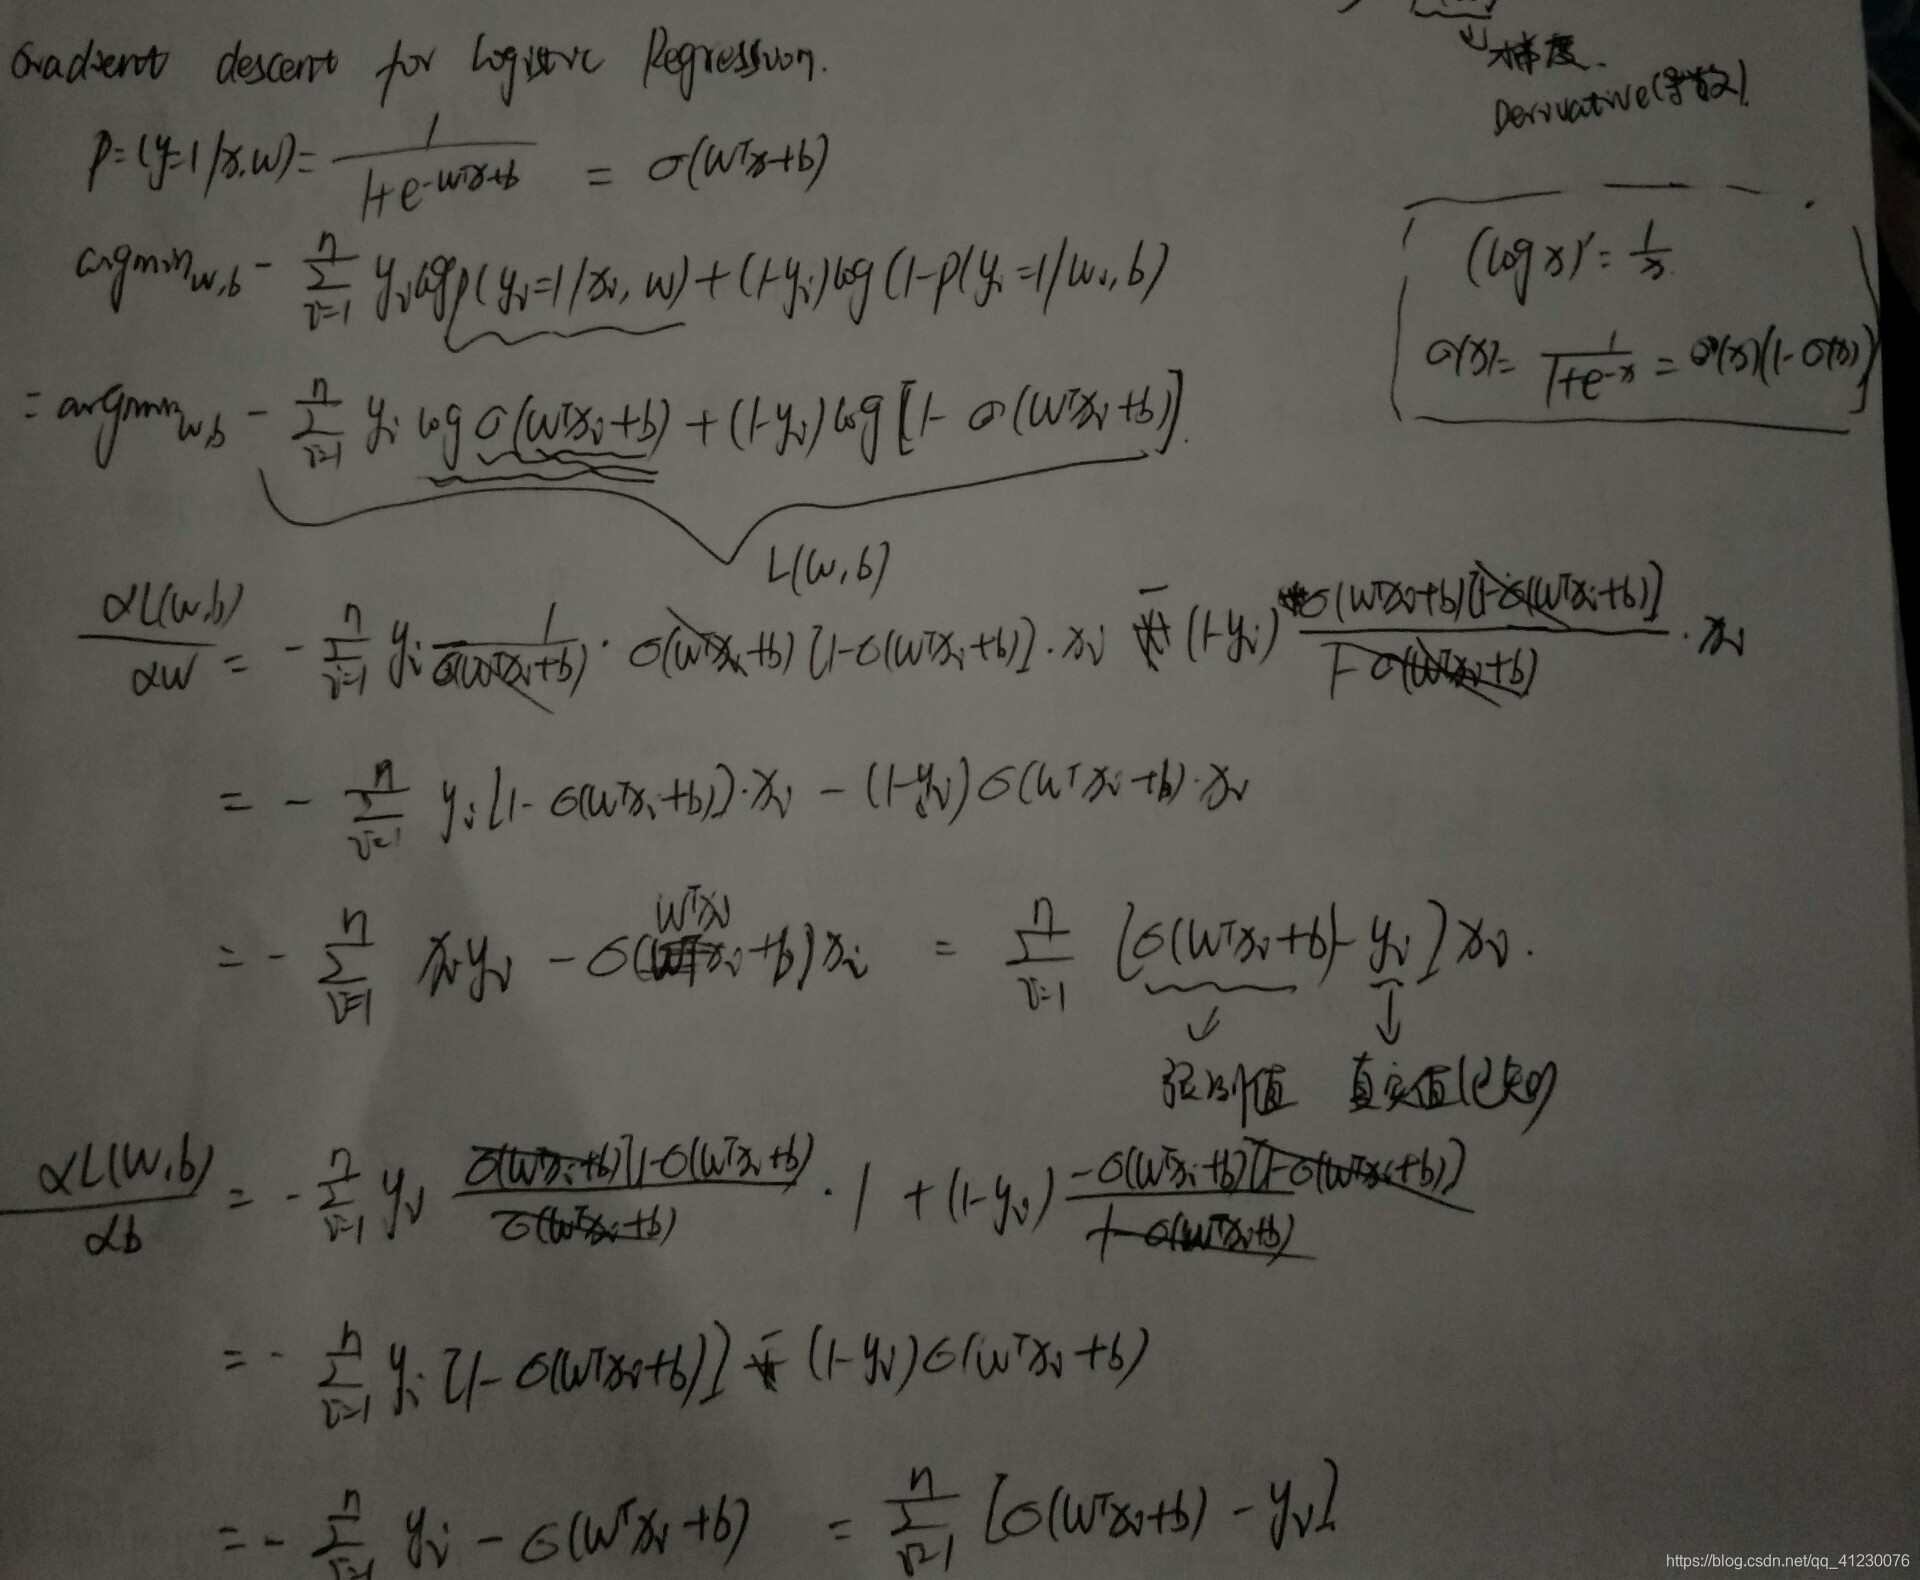 Gradient descent for Logistic Regression.
梯度.
Derivative(导数).
P=(y=1/x.w)= 1/(1+e^-wᵀx+b) = σ(wᵀx+b)
argmin_w,b - Σ_{i=1}^n y_i log p(y_i=1/x_i, w) + (1-y_i) log (1-p(y_i=1/w_i, b)
(log x)' = 1/x
σ(x)= 1/(1+e^-x) = σ(x)(1-σ(x))
= argmin_w,b - Σ_{i=1}^n y_i log σ(wᵀx_i+b) + (1-y_i) log [1- σ(wᵀx_i+b)].
L(w,b)
αL(w,b)/αw = - Σ_{i=1}^n y_i 1/σ(wᵀx_i+b) · σ(wᵀx_i+b) [1-σ(wᵀx_i+b)]·x_i - (1-y_i) σ(wᵀx_i+b)[1-σ(wᵀx_i+b)]/1-σ(wᵀx_i+b) · x_i
= - Σ_{i=1}^n y_i [1-σ(wᵀx_i+b)]·x_i - (1-y_i) σ(wᵀx_i+b)·x_i
= - Σ_{i=1}^n x_i y_i - σ(wᵀx_i+b) x_i = Σ_{i=1}^n [σ(wᵀx_i+b) - y_i] x_i.
预测值 真实值(已知)
αL(w,b)/αb = - Σ_{i=1}^n y_i σ(wᵀx_i+b)[1-σ(wᵀx_i+b)/σ(wᵀx_i+b) · 1 + (1-y_i) -σ(wᵀx_i+b)[1-σ(wᵀx_i+b)]/1-σ(wᵀx_i+b)
= - Σ_{i=1}^n y_i [1-σ(wᵀx_i+b)] - (1-y_i) σ(wᵀx_i+b)
= - Σ_{i=1}^n y_i - σ(wᵀx_i+b) = Σ_{i=1}^n [σ(wᵀx_i+b) - y_i]
https://blog.csdn.net/qq_41230076